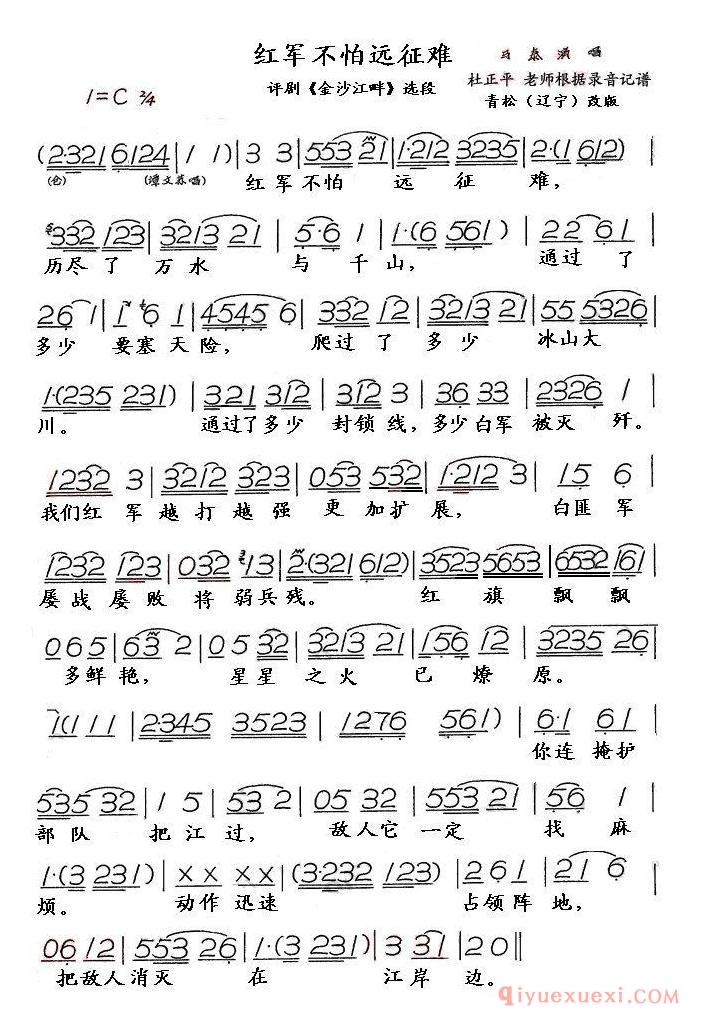 红军不怕远征难
唱
1=C 2/4
评剧《金沙江畔》选段
杜正平 老师根据录音记谱
青松（辽宁）改版
(2·321 6124 | 1 1) | 3 3 | 553 21 | 1·212 3235 | 2·(1 612) |
(仓) (谭文苏唱) 红军不怕 远 征 难，
332 123 | 3213 21 | 5·6 1 | 1·(6 561) | 22 61 |
历尽了 万水 与千山， 通过了
26 1 | 1 6 1 | 4545 6 | 332 12 | 3213 21 | 55 5326 |
多少 要塞天险， 爬过了多少 冰山大
1·(235 231) | 321 312 | 3·212 3 | 36 33 | 2326 1 |
川。 通过了多少 封锁线，多少白军 被灭 歼。
1232 3 | 3212 323 | 053 532 | 1·212 3 | 15 6 |
我们红 军 越打越强 更加扩展， 白匪军
1232 123 | 032 13 | 2·(321 612) | 3523 5653 | 6532 161 |
屡战屡败 将弱兵残。 红 旗 飘飘
065 | 63 2 | 05 32 | 3213 21 | 56 12 | 3235 26 |
多鲜艳， 星星 之火 已 燎 原。
1(1 1 1 | 2345 3523 | 1276 561) | 6·1 61 |
你连掩护
535 32 | 1 5 | 53 2 | 05 32 | 553 21 | 56 1 |
部队 把江过， 敌人它一定 找麻
1·(3 231) | X X X X | (3·232 123) | 2 61 | 21 6 |
烦。 动作迅速 占领阵地，
06 12 | 553 26 | 1·(3 231) | 3 31 | 2 0 ‖
把敌人消灭 在 江岸 边。
qiyuexuexi.com